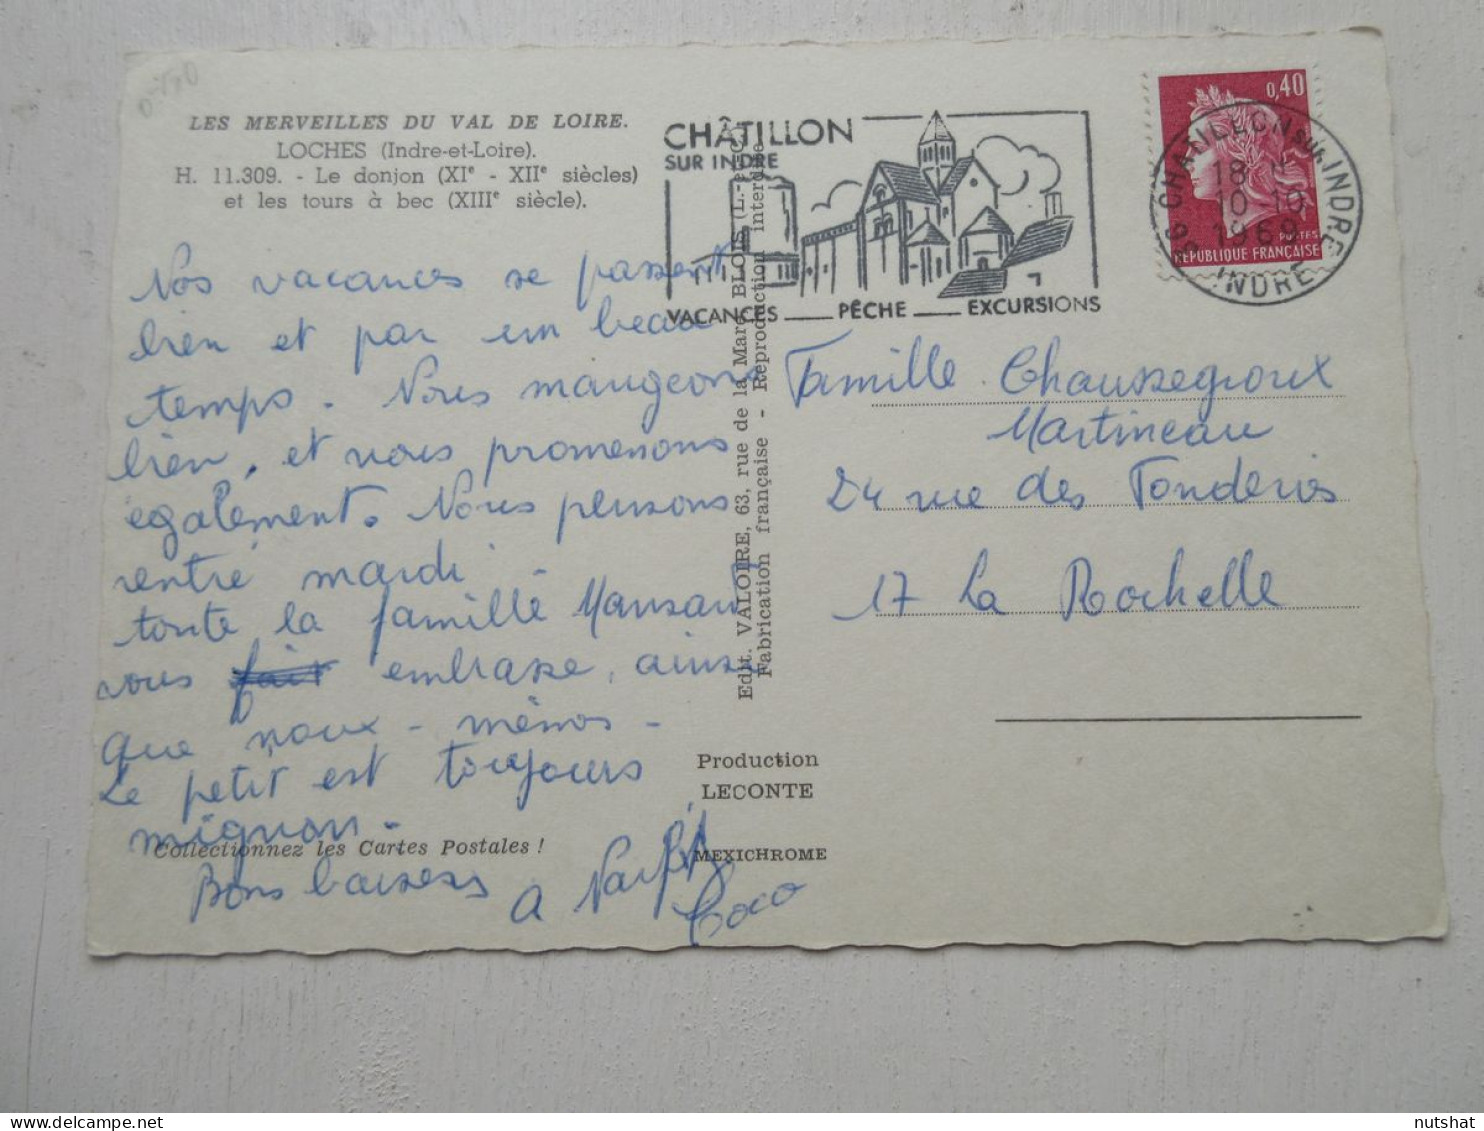 LES MERVEILLES DU VAL DE LOIRE.
LOCHES (Indre-et-Loire).
H. 11.309. - Le donjon (XIe - XIIe siècles)
et les tours à bec (XIIIe siècle).
CHÂTILLON
SUR INDRE
VACANCES PÊCHE EXCURSIONS
0,40
POSTES
REPUBLIQUE FRANÇAISE
36 CHATILLON SUR INDRE
18 H
10 10
INDRE
Nos vacances se passent
bien et par un beau
temps. Nous mangeons
bien, et nous promenons
également. Nous pensons
rentré mardi
toute la famille Mansant
vous embrasse, ainsi
que nous-mêmes.
Le petit est toujours
mignon.
Bons baisers
a
Coco
Famille Chaussegroux
Martineau
24 rue des Fonderies
17 La Rochelle
Edit. VALOIRE, 63, rue de la Marc BLOIS (L.-et-C.)
Fabrication française - Reproduction interdite
Production
LECONTE
MEXICHROME
Collectionnez les Cartes Postales !
nutshat